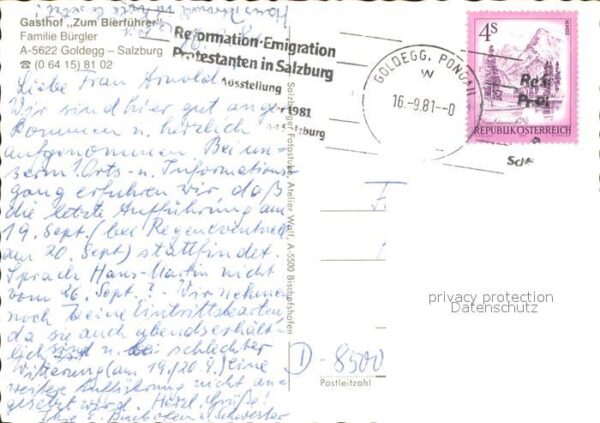 Gasthof „Zum Bierführer"
Familie Bürgler
A-5622 Goldegg – Salzburg
☎ (0 64 15) 81 02
Liebe Frau Arnold
Wir sind hier gut ange-
kommen u. herzlich
aufgenommen. Bei un-
serm Orts- u. Informations-
gang erfuhren wir, daß
die letzte Aufführung am
19. Sept. (bei Regen eventuell
am 20. Sept) stattfindet.
Sprach Hans-Martin nicht
vom 26. Sept.? - Wir nehmen
noch keine Eintrittskarten,
da sie auch abends erhält-
lich sind u. bei schlechter
Witterung (am 19./20. 9.) eine
weitere Aufführung nicht an-
gesetzt wird. Herzl. Grüße!
Ihre E. u. Schwester
Reformation·Emigration
Protestanten in Salzburg
Ausstellung
1981
Salzburg
GOLDEGG, PONGAU
w
16.-9.81-0
4S
REPUBLIK ÖSTERREICH
Refo
Prot
Salzburger Fotostube, Atelier Wolf, A-5500 Bischofshofen
F
privacy protection
Datenschutz
D-8500
Postleitzahl